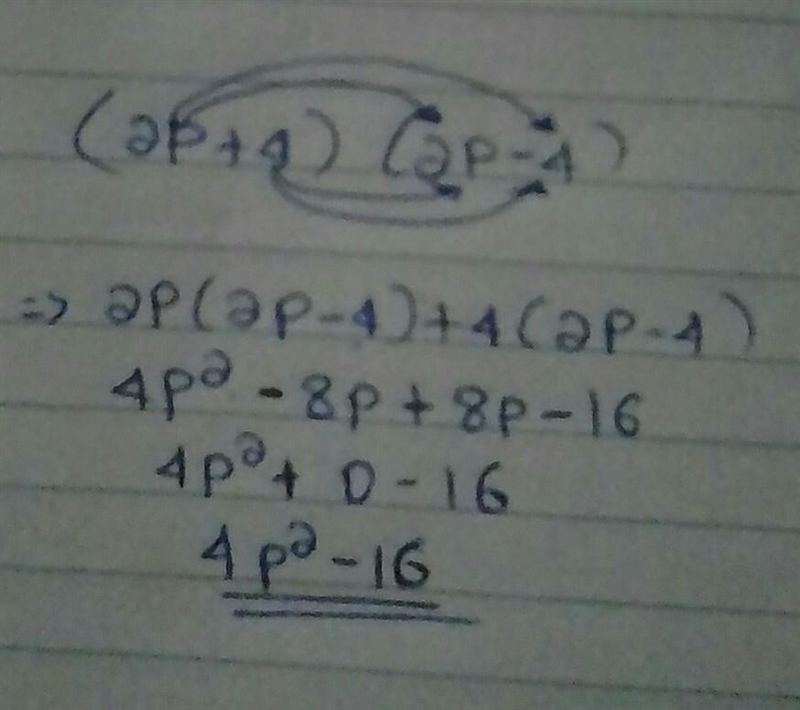 (2P+4) (2P-4)
=> 2P(2P-4)+4(2P-4)
4P² - 8P + 8P - 16
4P² + 0 - 16
4P² - 16